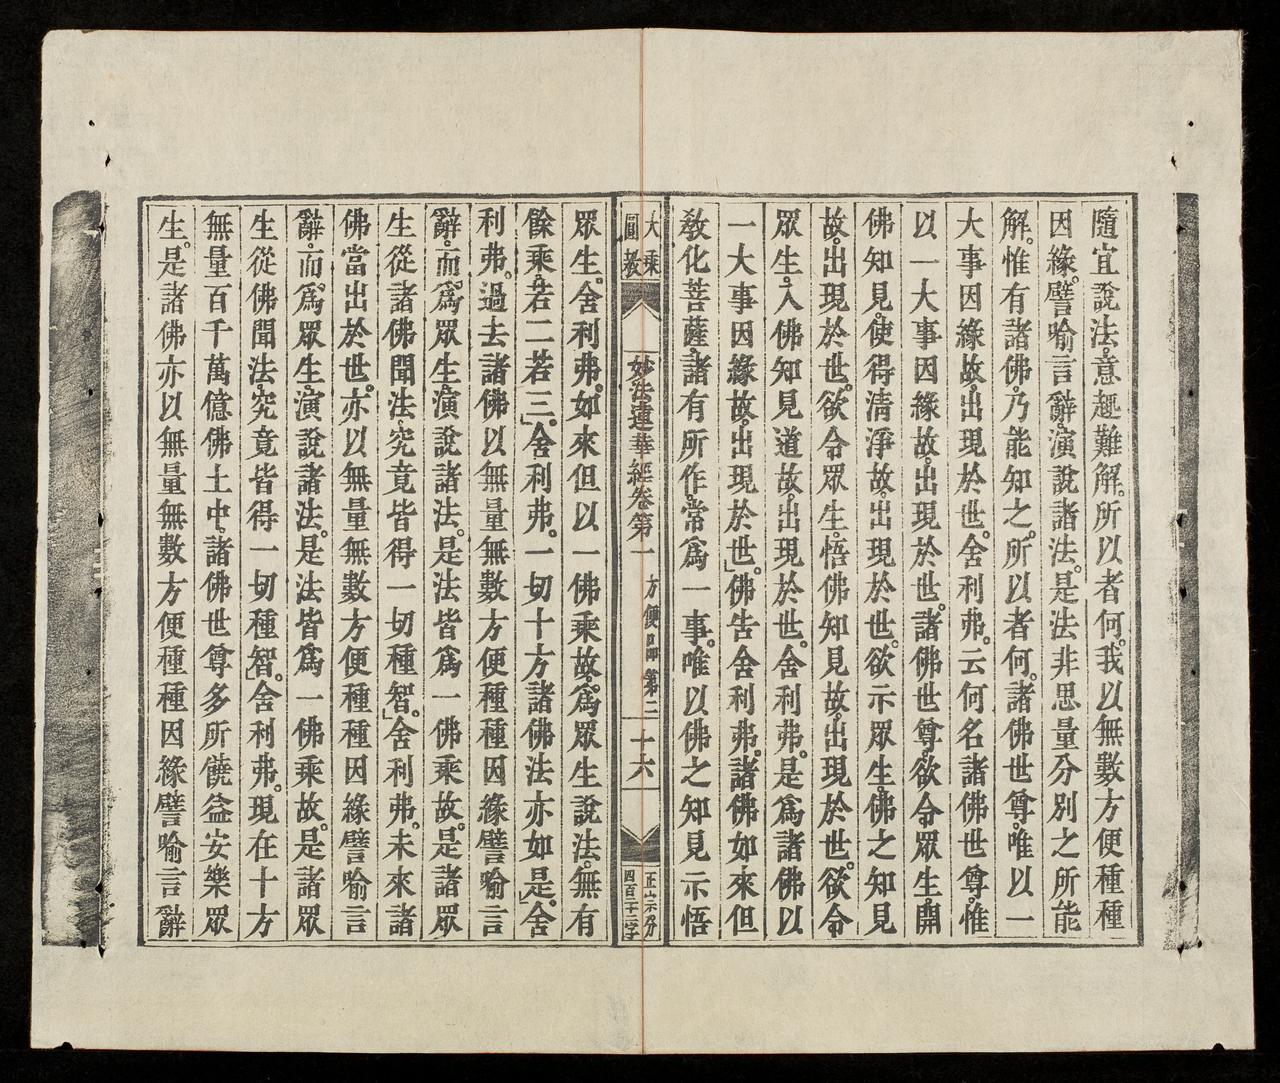 隨宜說法。意趣難解。所以者何。我以無數方便種種
因緣。譬喻言辭。演說諸法。是法非思量分別之所能
解。惟有諸佛。乃能知之。所以者何。諸佛世尊。唯以一
大事因緣故。出現於世。舍利弗。云何名諸佛世尊。惟
以一大事因緣故。出現於世。諸佛世尊。欲令眾生。開
佛知見。使得清淨故。出現於世。欲示眾生。佛之知見
故。出現於世。欲令眾生。悟佛知見故。出現於世。欲令
眾生。入佛知見道故。出現於世。舍利弗。是為諸佛以
一大事因緣故。出現於世」。佛告舍利弗。諸佛如來但
教化菩薩。諸有所作。常為一事。唯以佛之知見示悟
大乘
圓教
妙法蓮華經卷第一
方便品第二
十六
正宗分
四百三十三字
眾生。舍利弗。如來但以一佛乘故。為眾生說法。無有
餘乘。若二若三」。舍利弗。一切十方諸佛法亦如是」。舍
利弗。過去諸佛以無量無數方便種種因緣譬喻言
辭。而為眾生。演說諸法。是法皆為一佛乘故。是諸眾
生從諸佛聞法。究竟皆得一切種智」。舍利弗。未來諸
佛當出於世。亦以無量無數方便種種因緣譬喻言
辭。而為眾生。演說諸法。是法皆為一佛乘故。是諸眾
生從佛聞法。究竟皆得一切種智」。舍利弗。現在十方
無量百千萬億佛土中。諸佛世尊多所饒益安樂眾
生。是諸佛亦以無量無數方便種種因緣譬喻言辭